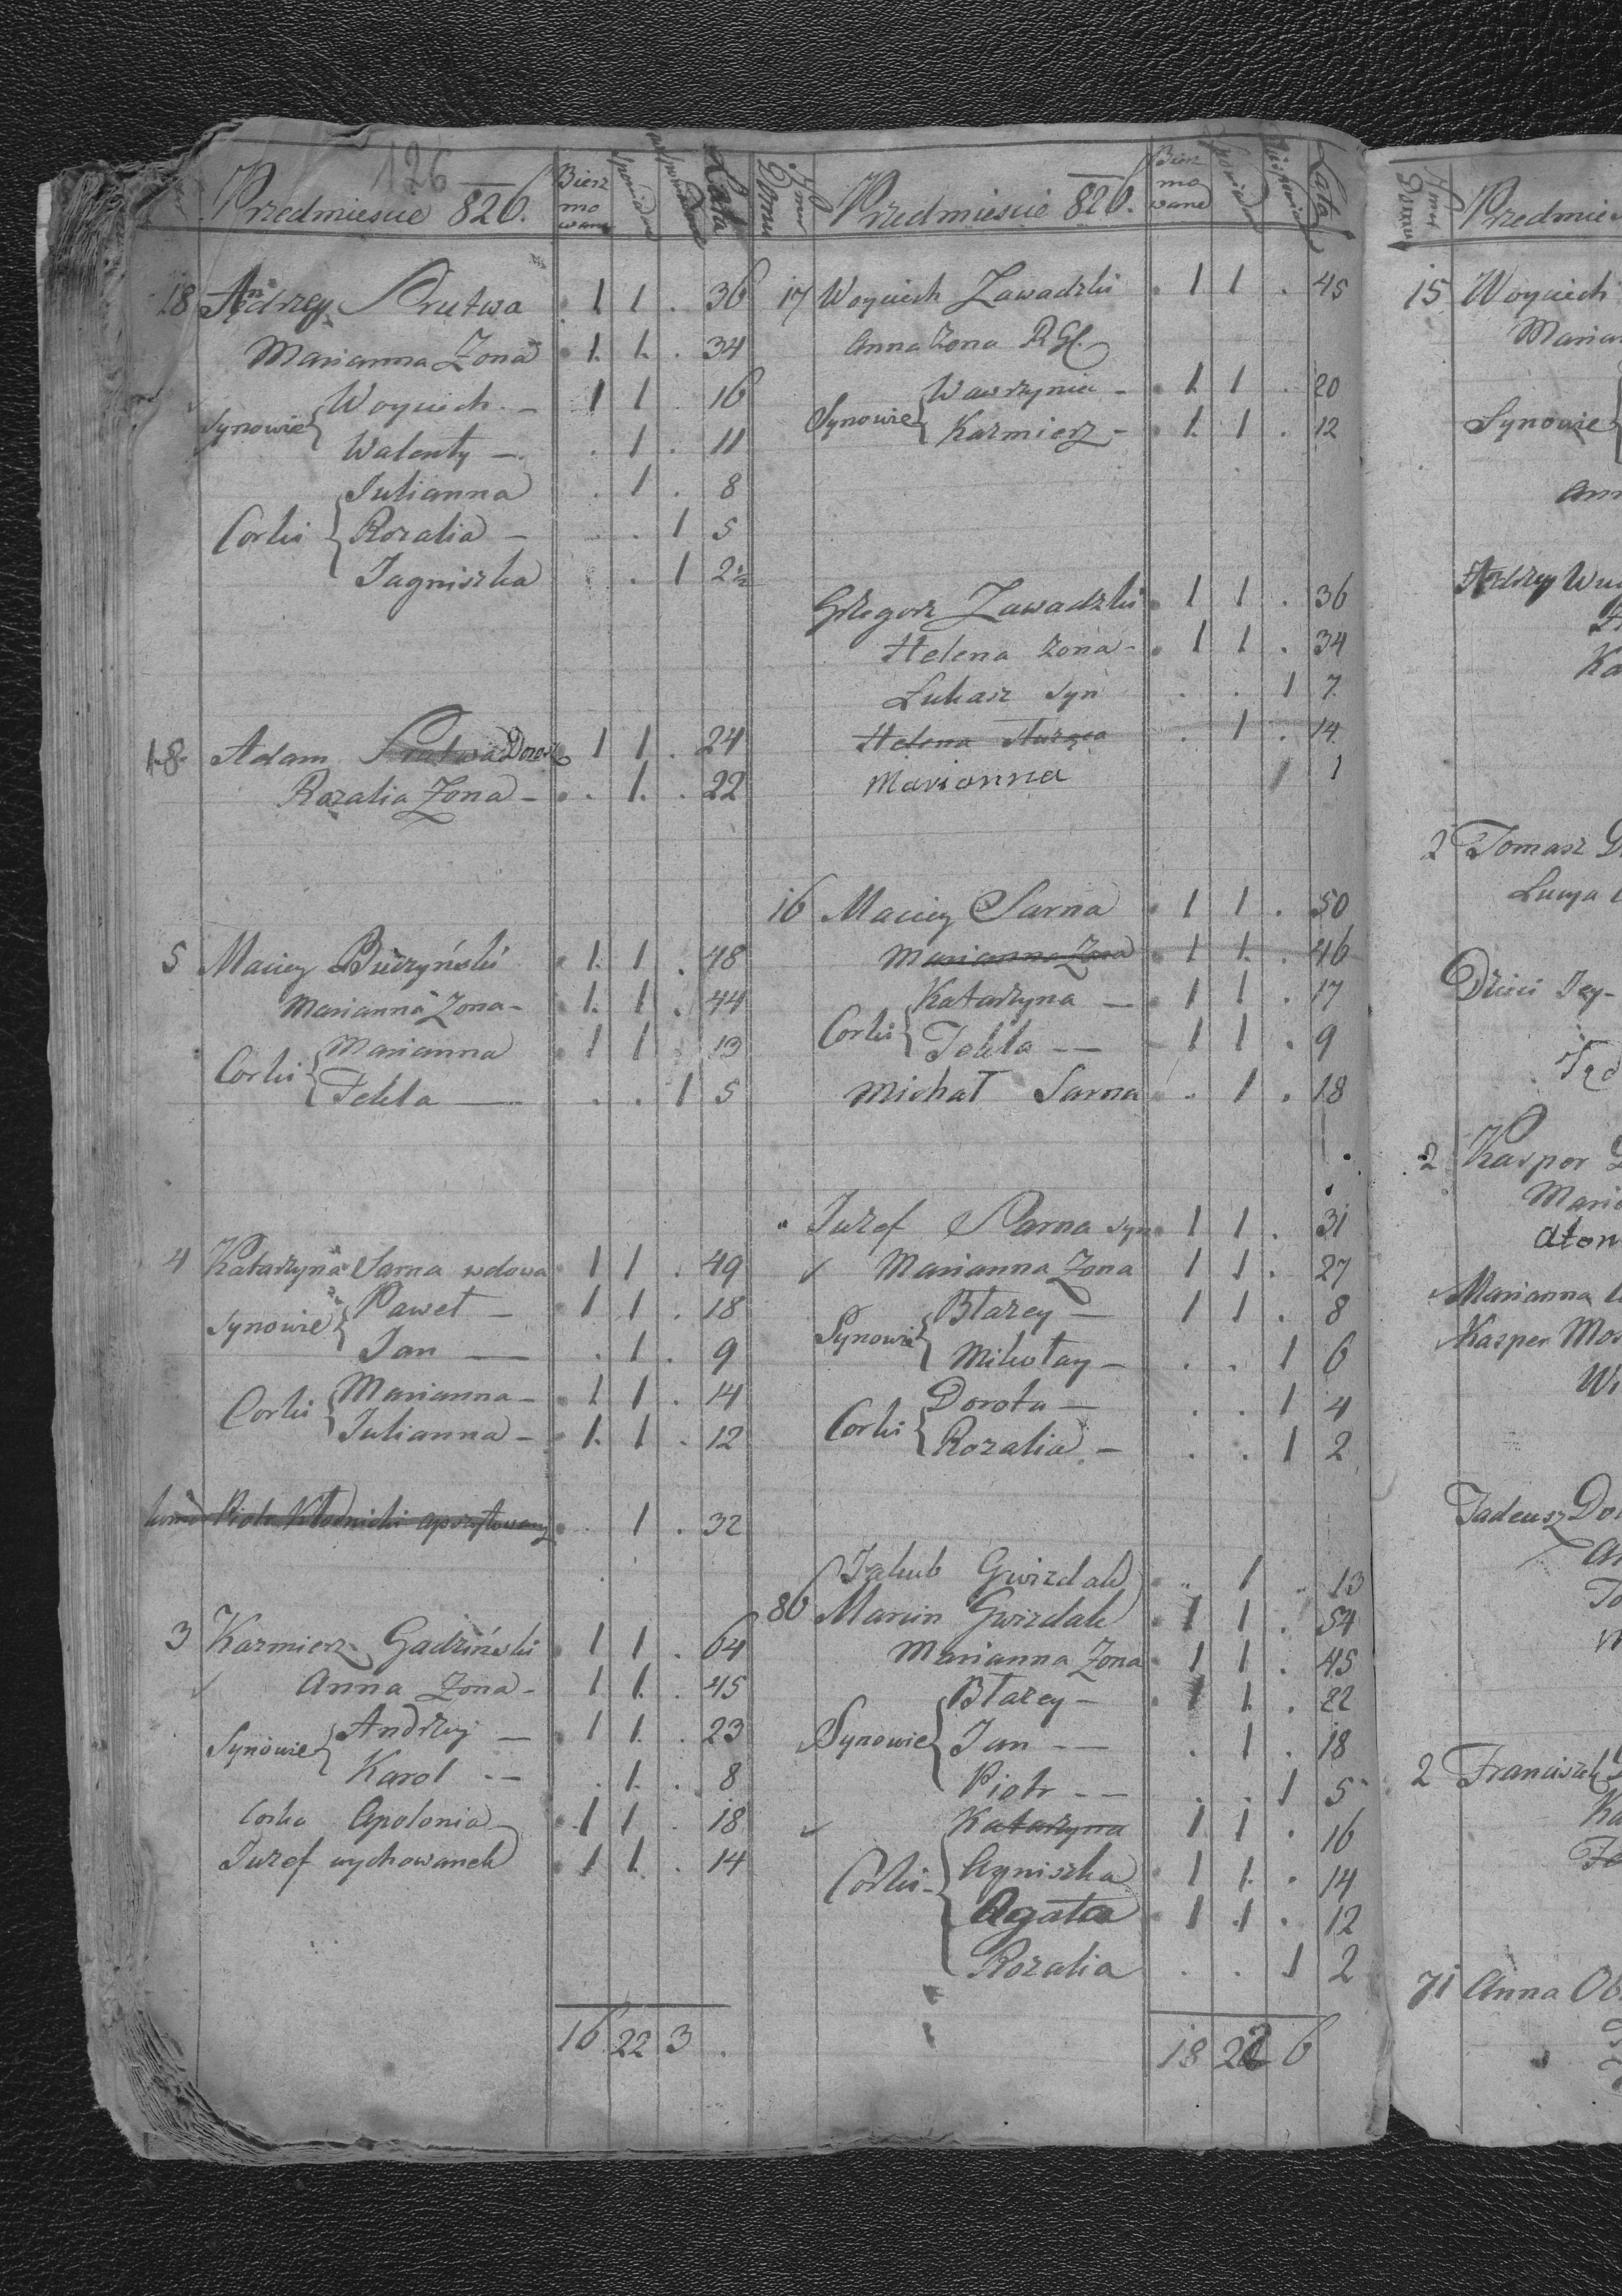 126
Przedmiescie 826.
Bierz
mo
wane
Lata
18 Andrzey Prutwa . 1 1 . 36
Marianna Zona . 1. 1. . 34
Synowie { Woyciech - 1 1 . 16
Walenty - . 1 . 11
Corki { Julianna . 1 . 8
Rozalia - . . 1 5
Jagniszka . . 1 2½
18. Adam Prutwa 1 1 . 24
Rozalia Zona - . 1. . 22
5 Maciey Buczyński . 1. 1 . 48
Marianna Zona - 1. 1 . 44
Corki { Marianna 1 1 13
Tekla - . . 1 5
4 Katarzyna Sarna wdowa 1 1 . 49
Synowie { Paweł - 1 1 . 18
Jan - . 1 . 9
Corki { Marianna - 1 1 . 14
Julianna - 1. 1 . 12
Piotr Kłodnicki . 1 . 32
3 Kazmierz Gadziński 1 1 . 64
Anna Zona - 1. 1. . 45
Synowie { Andrzey - 1 1. . 23
Karol - - . 1. . 8
Corka Apolonia 1 1 . 18
Juzef wychowanek 1 1. . 14
16 22 3 .
Numr
Domu
Przedmiescie 826.
Bierz
mo
wane
Lata
17 Woyciech Zawadzki . 1 1 . 45
Anna Zona RGł.
Synowie { Wawrzyniec - . 1. 1 . 20
Kazmierz - . 1. 1 . 12
Grzegorz Zawadzki . 1 1 . 36
Helena Zona - . 1 1 . 34
Łukasz Syn . . 1 7.
Helena . 1 . 14
Marianna 1 1
16 Maciey Sarna 1 1 . 50
Marianna Zona 1 1. . 46
Corki { Katarzyna - 1 1 . 17
Tekla - - 1 1 . 9
Michał Sarna . 1 . 18
Juzef Sarna syn 1 1 . 31
Marianna Zona 1 1 . 27
Synowie { Błazey - 1 1 . 8
Mikołay - . . 1 6
Corki { Dorota - . . 1 4
Rozalia - . . 1 2
Jakub Gwizdak 1 13
86 Marcin Gwizdak 1 1 . 54
Marianna Zona 1 1 . 45
Synowie { Błazey - 1 1. . 22
Jan - - . 1 . 18
Piotr - - . . 1 5
Katarzyna 1 1 . 16
Corki - { Agniszka 1 1. . 14
Agata 1 1 . 12
Rozalia . . 1 2
18 22 6
Numr
Domu
15 Woyciech
Synowie
2 Tomasz
Dzieci Jey -
2 Kasper
Marianna
Kasper
Tadeusz
2 Franciszek
71 Anna